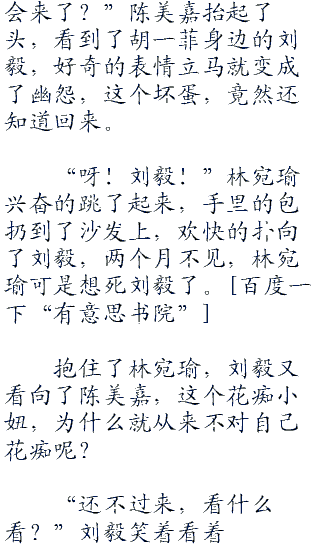 会来了？”陈美嘉抬起了
头，看到了胡一菲身边的刘
毅，好奇的表情立马就变成
了幽怨，这个坏蛋，竟然还
知道回来。
“呀！刘毅！”林宛瑜
兴奋的跳了起来，手里的包
扔到了沙发上，欢快的扑向
了刘毅，两个月不见，林宛
瑜可是想死刘毅了。[百度一
下“有意思书院”]
抱住了林宛瑜，刘毅又
看向了陈美嘉，这个花痴小
妞，为什么就从来不对自己
花痴呢？
“还不过来，看什么
看？”刘毅笑着看着